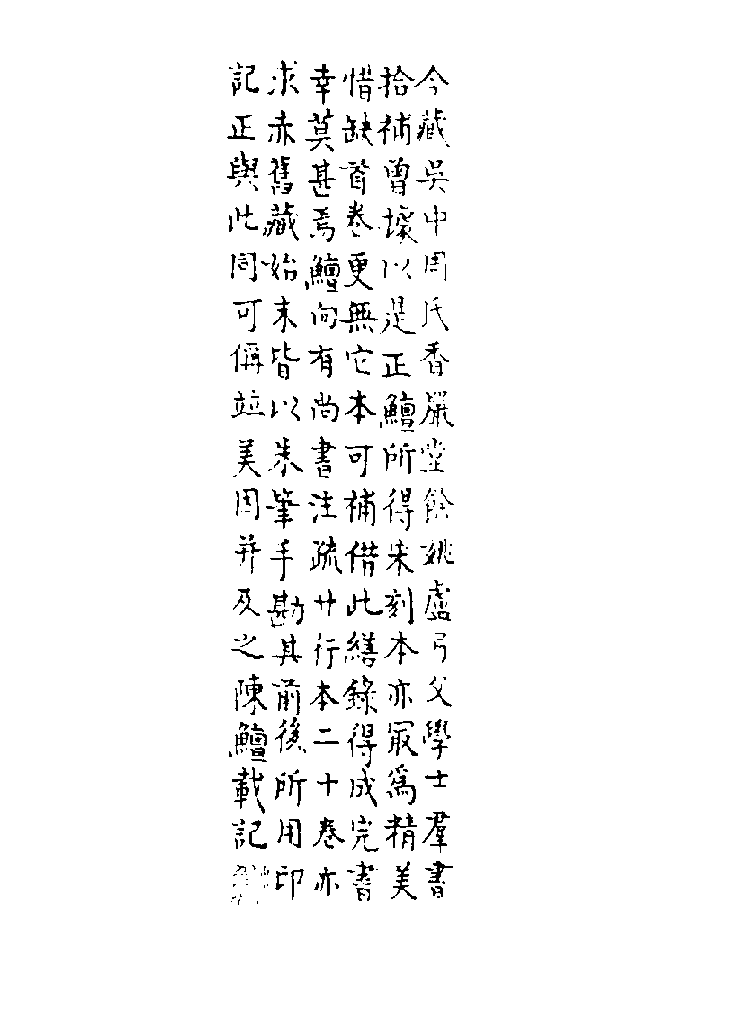 今藏吳中周氏香嚴堂餘姚盧弓父學士羣書
拾補曾㨿以是正鱣所得朱刻本亦冣爲精美
惜缺首卷更無它本可補借此繕錄得成完書
幸莫甚焉鱣向有尚書注疏廿行本二十卷亦
求赤舊藏始末皆以朱筆手勘其前後所用印
記正與此同可偁竝美因并及之陳鱣載記